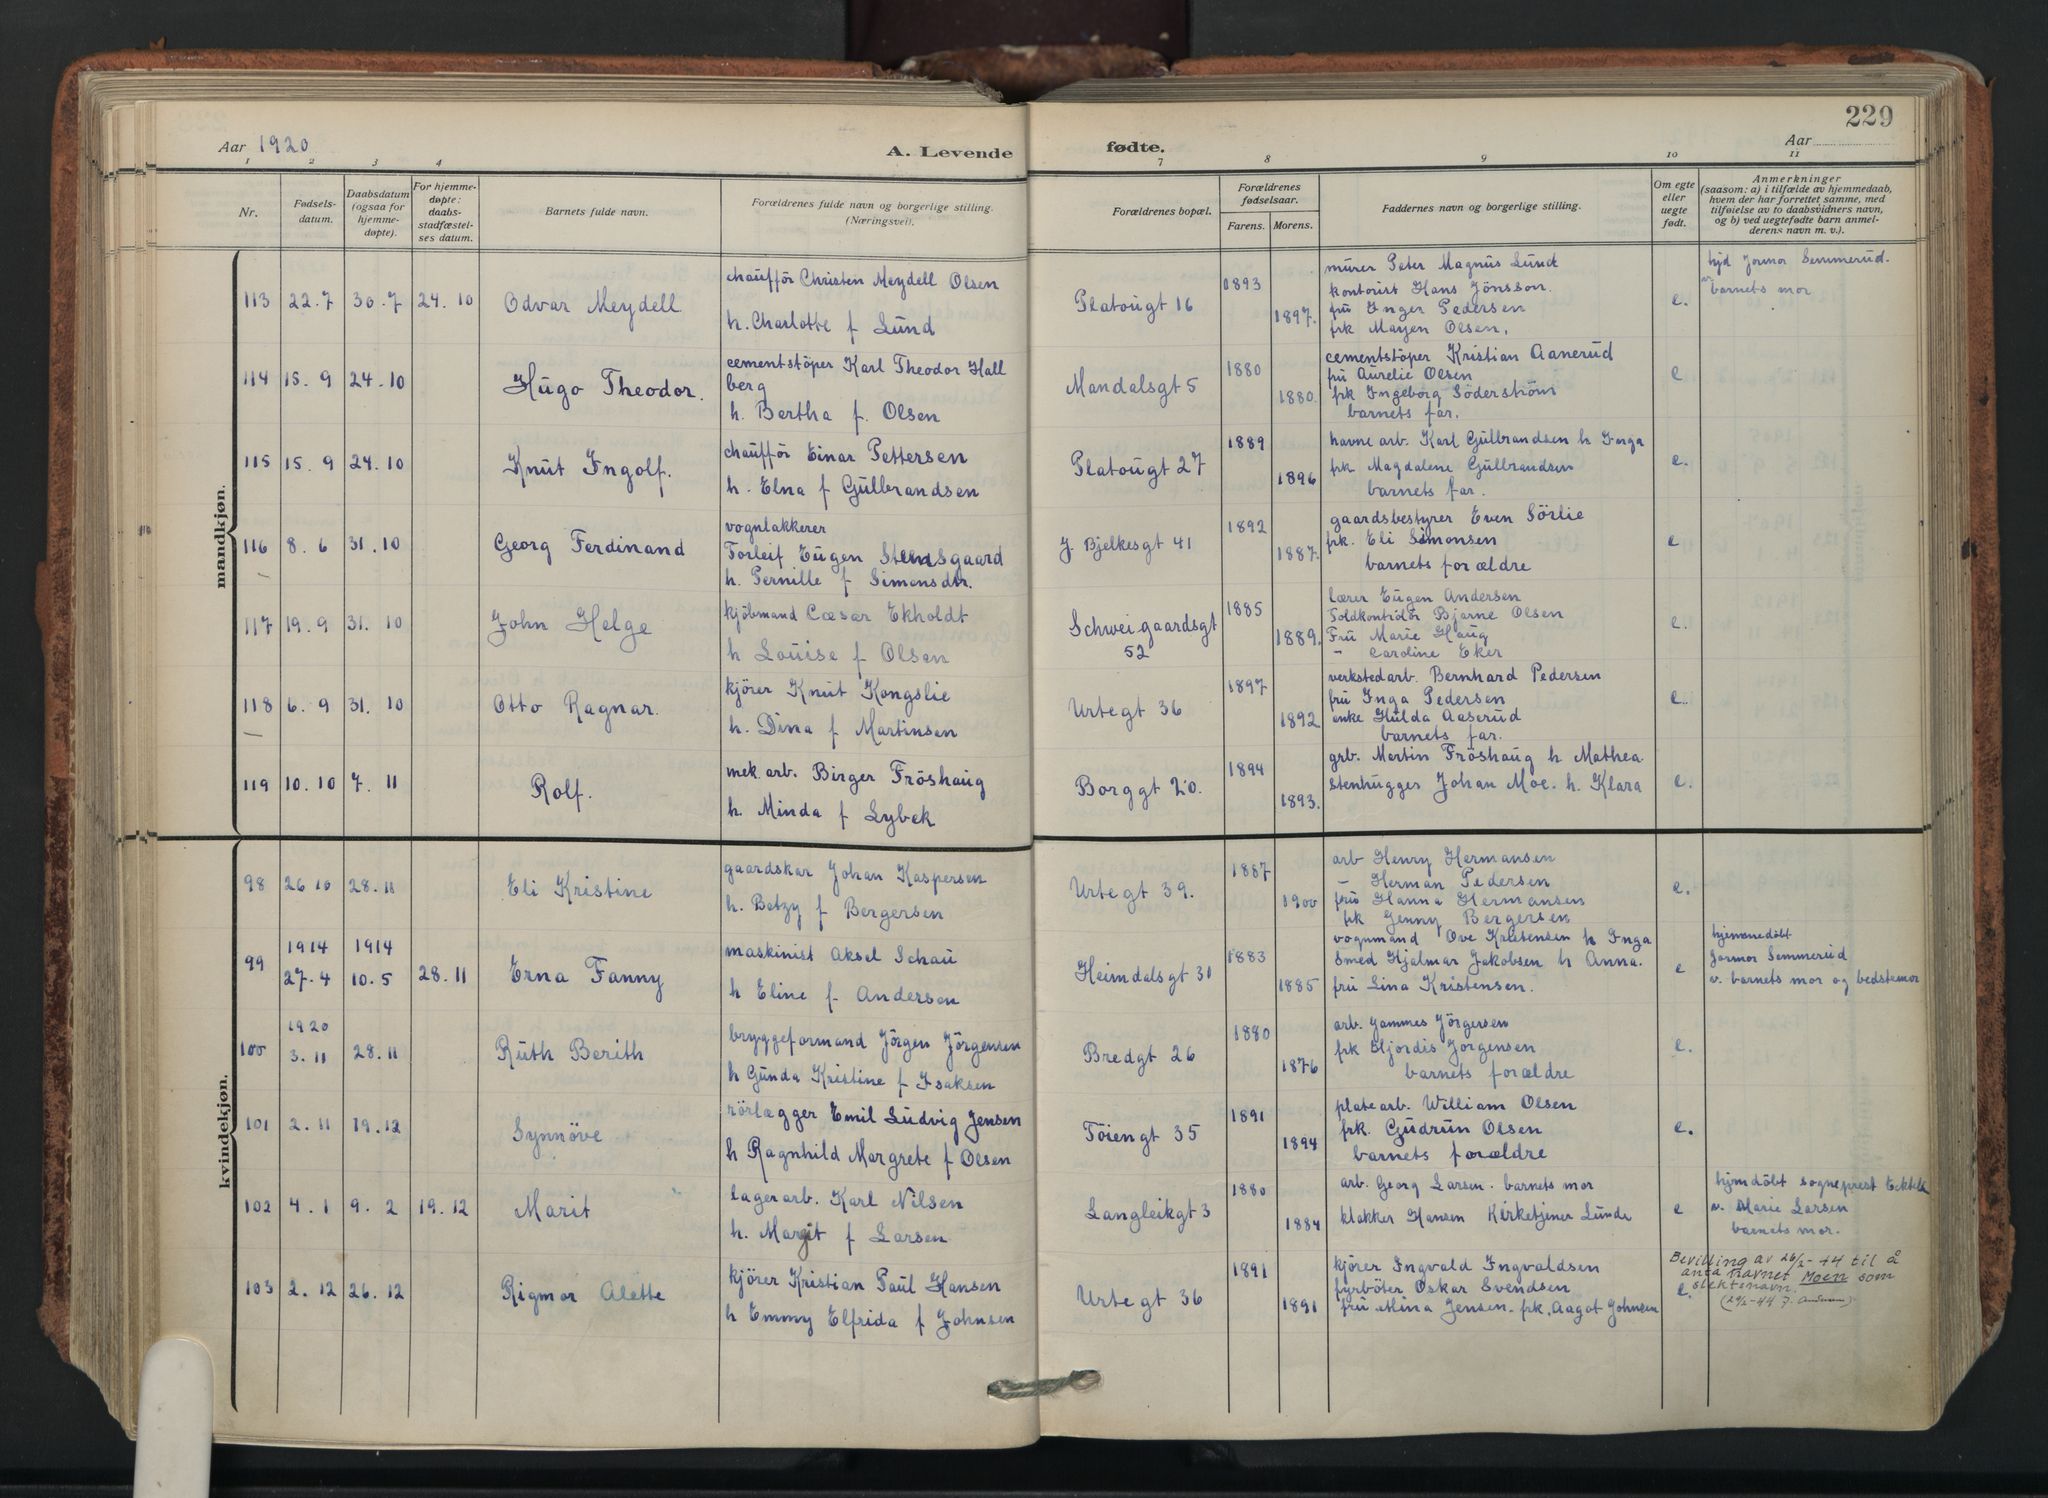 229
Aar 1920
A. Levende fødte.
Aar
1 2 3 4 7 8 9 10 11
Nr.
Fødsels-
datum.
Daabsdatum
(ogsaa for
hjemme-
døpte).
For hjemme-
døpte:
daabs-
stadfæstel-
ses datum.
Barnets fulde navn.
Forældrenes fulde navn og borgerlige stilling.
(Næringsvei).
Forældrenes bopæl.
Forældrenes
fødselsaar.
Farens. Morens.
Faddernes navn og borgerlige stilling.
Om egte
eller
uegte
født.
Anmerkninger
(saasom: a) i tilfælde av hjemmedaab,
hvem der har forrettet samme, med
tilføielse av to daabsvidners navn,
og b) ved uegtefødte barn anmel-
derens navn m. v.).
mandkjøn.
113 22.7 30.7 24.10 Odvar Meydell
chaufför Christen Meydell Olsen
h. Charlotte f Lund
Platougt 16
1893
1897.
murer Peter Magnus Lund
kontorist Hans Jönsson.
fru Inger Pedersen
frk Mayen Olsen.
e.
hjd Jormor Semmerud.
v. barnets mor
114 15.9 24.10 Hugo Theodor.
cementstöper Karl Theodor Hall
berg
h. Bertha f. Olsen
Mandalsgt 5
1880
1880.
cementstöper Kristian Aanerud
fru Aurelie Olsen
frk Ingeborg Söderström
barnets far.
e
115 15.9 24.10 Knut Ingolf.
chaufför Einar Pettersen
h. Elna f Gulbrandsen
Platougt 27
1889
1896
havnearb. Karl Gulbrandsen h Inga
frk Magdalene Gulbrandsen
barnets far.
e.
116 8.6 31.10 Georg Ferdinand
vognlakkerer
Torleif Eugen Stensgaard
h. Pernille f Simensdtr.
J. Bjelkesgt 41
1892
1887.
gaardsbestyrer Even Sörlie
frk. Eli Simonsen
barnets forældre
e
117 19.9 31.10 John Helge
kjöbmand Cæsar Ekholdt
h Louise f Olsen
Schweigaardsgt
52
1885
1889.
lærer Eugen Andersen
Toldkontrolör Bjarne Olsen
Fru Marie Haug
" Caroline Eker
e.
118 6.9 31.10 Otto Ragnar.
kjörer Knut Kongslie
h. Dina f Martinsen
Urtegt 36
1897
1892
verkstedarb. Bernhard Pedersen
fru Inga Pedersen
enke Hulda Aaserud
barnets far.
e.
119 10.10 7.11 Rolf.
mek. arb. Birger Fröshaug
h. Minda f Lybek
Borggt 20.
1894
1893.
grb. Martin Fröshaug h Mathea
stenhugger Johan Moe. h. Klara
e.
kvindekjøn.
98 26 10 28.11 Eli Kristine
gaardskar Johan Kaspersen
h. Betzy f Bergersen
Urtegt 39.
1887
1900
arb Henry Hermansen
— Herman Pedersen
fru Hanna Hermansen
frk Genny Bergersen
e.
99 1914 27.4 1914 10.5 28.11 Erna Fanny
maskinist Aksel Schau
h Eline f. Andersen
Heimdalsgt 31
1883
1885
vognmand Ove Kristensen h Inga
Smed Hjalmar Jakobsen h Anna.
fru Lina Kristensen.
e
hjemmedöbt
Jormor Semmerud
v. barnets mor og bedstemor
100 1920 3.11 28.11 Ruth Berith
bryggeformand Jörgen Jörgensen
h Gunda Kristine f Isaksen
Bredgt 26
1880
1876
arb. Jammes Jörgensen
frk Hjordis Jorgensen
barnets forældre
e.
101 2.11 19.12 Synnöve
rörlægger Emil Ludvig Jensen
h Ragnhild Margrete f Olsen
Töiengt 35
1891
1894
platearb. William Olsen
frk. Gudrun Olsen
barnets forældre
e.
102 4.1 9.2 19.12 Marit
lagerarb. Karl Nilsen
h. Margit f Larsen
Langleikgt 3
1880
1884
arb. Georg Larsen. barnets mor
klokker Hansen Kirketjener Lunde
e
hjemdöbt sogneprest
v. Marie Larsen
barnets mor.
103 2.12 26.12 Rigmor Alette
kjörer Kristian Paul Hansen
h Emmy Elfrida f Johnsen
Urtegt 36
1891
1891
kjörer Ingvald Ingvaldsen
fyrböter Oskar Svendsen
fru Mina Jensen. frk. Aagot Johnsen
e.
Bevilling av 26/2-44 til å
anta navnet Moen som
slektenavn.